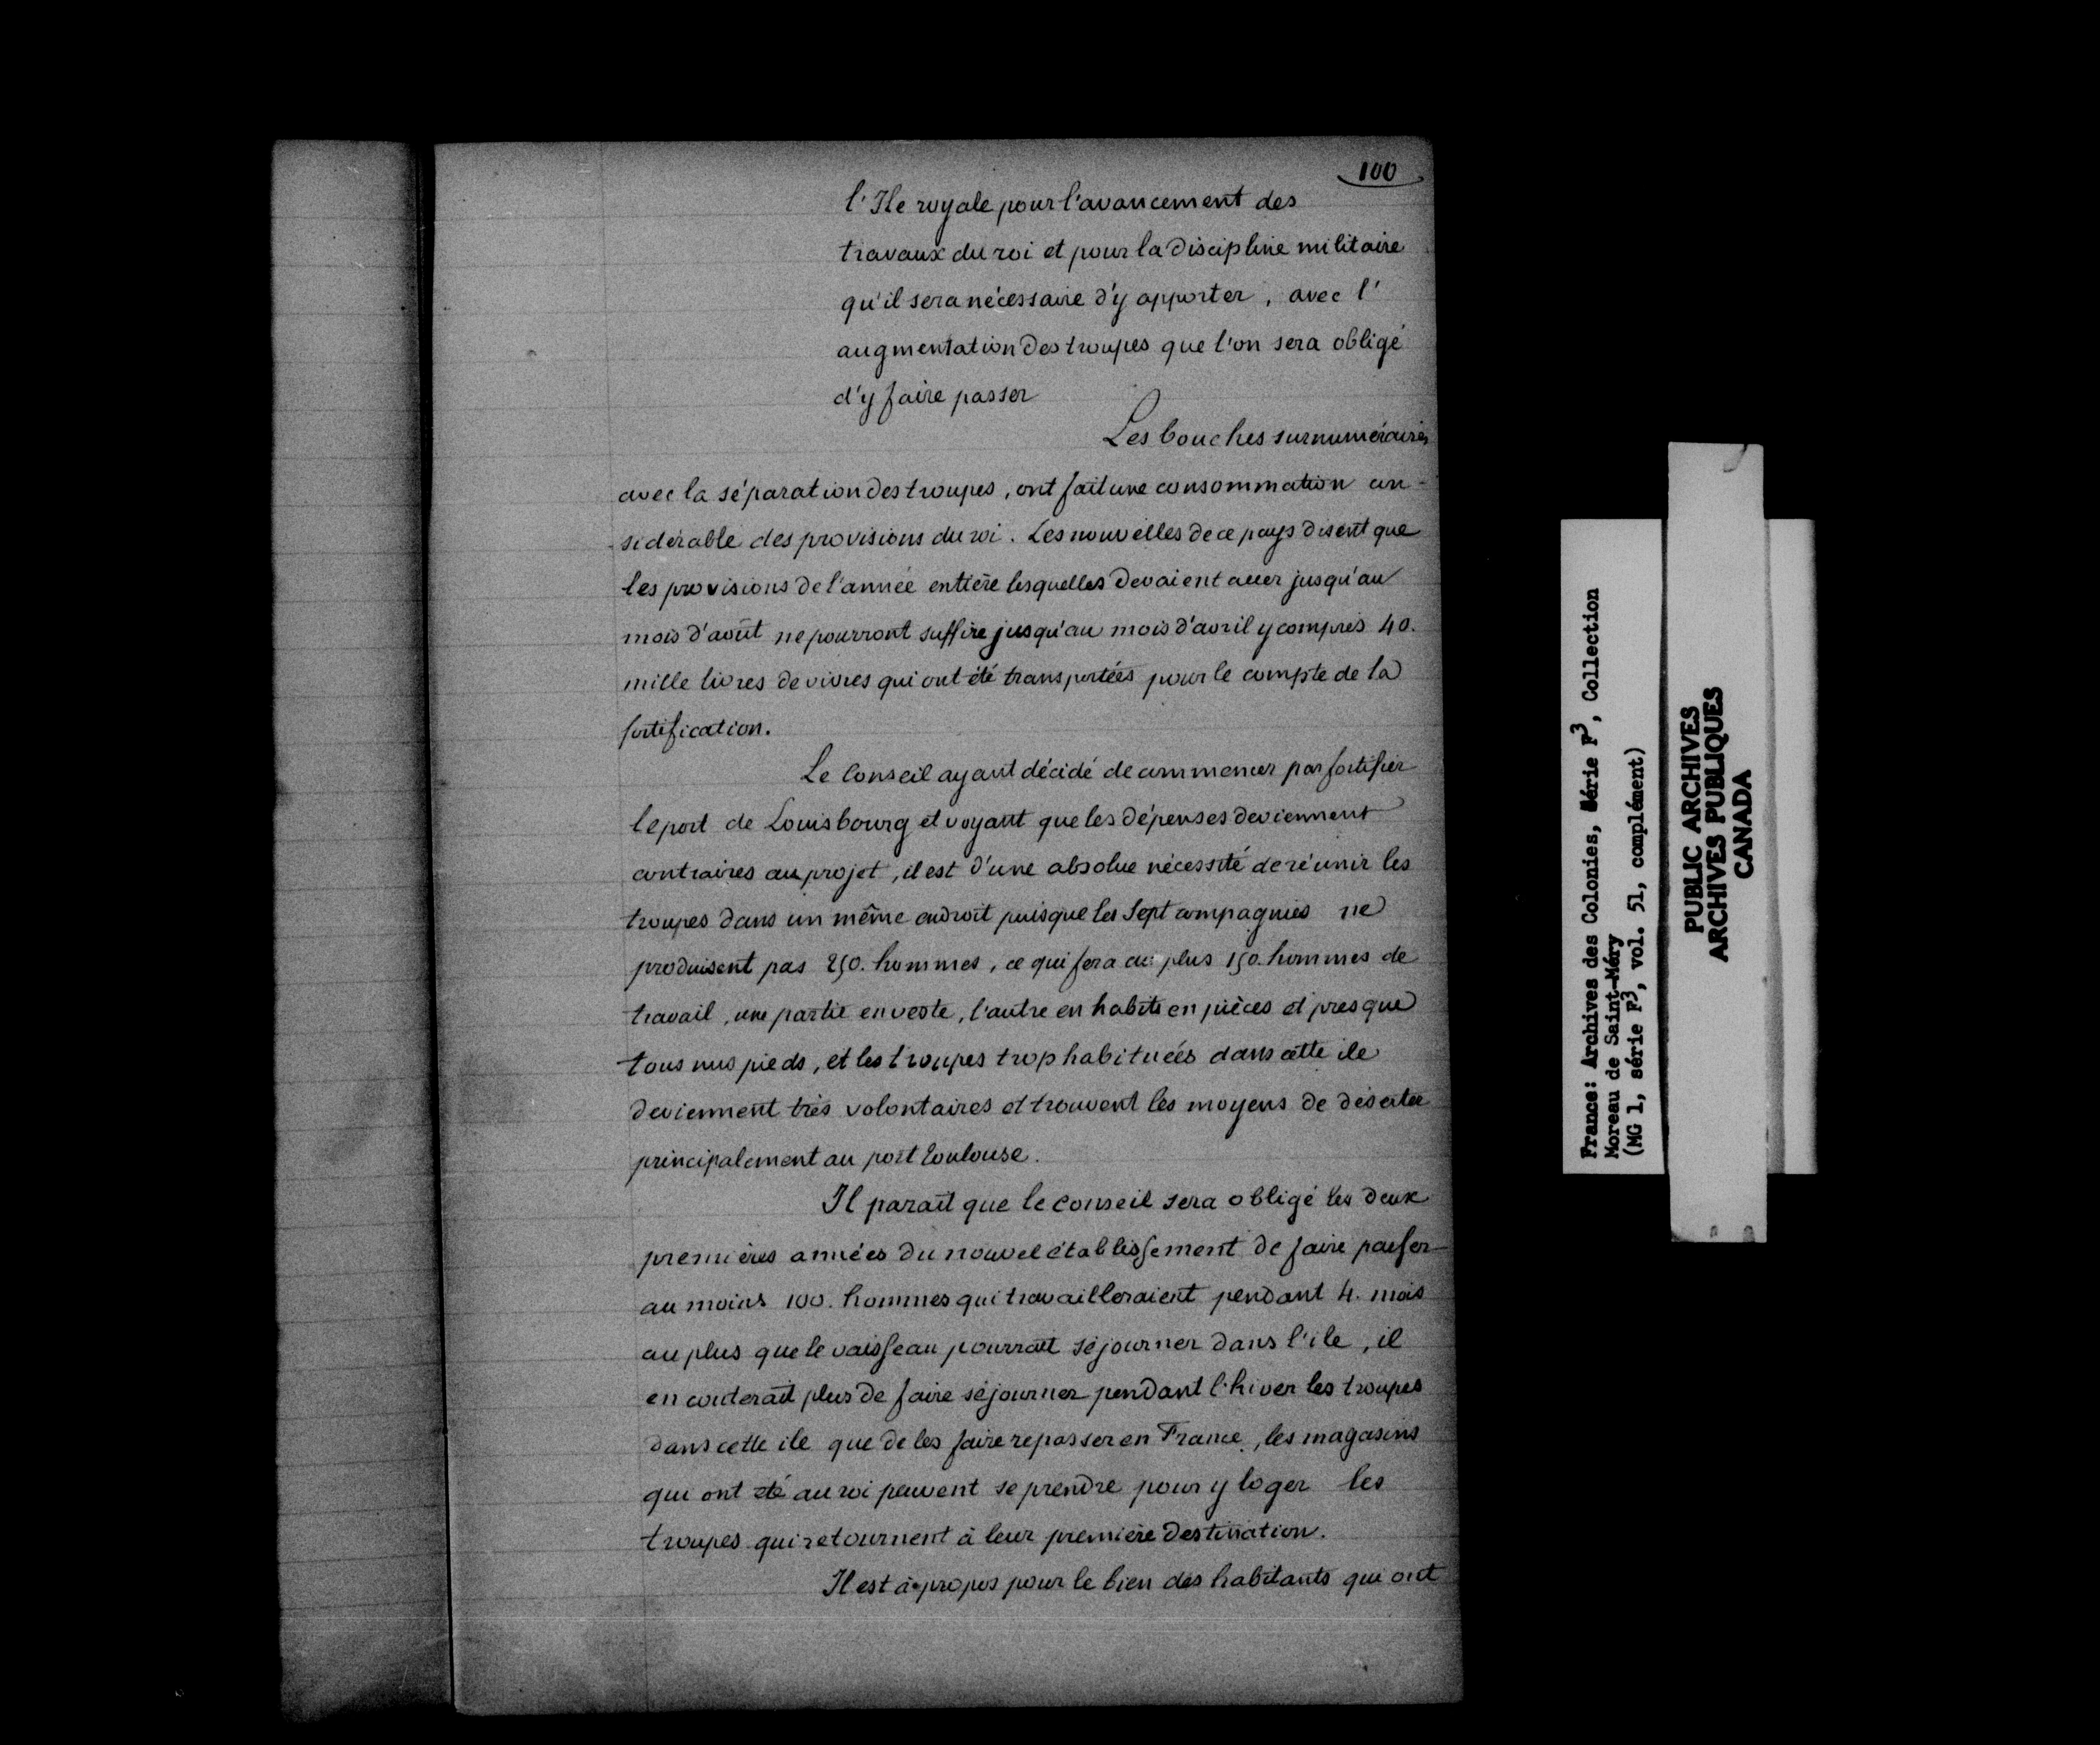 100
l'Ile royale pour l'avancement des
travaux du roi et pour la discipline militaire
qu'il sera nécessaire d'y apporter, avec l'
augmentation des troupes que l'on sera obligé
d'y faire passer
Les bouches surnuméraires
avec la séparation des troupes, ont fait une consommation con-
sidérable des provisions du roi. Les nouvelles de ce pays disent que
les provisions de l'année entière lesquelles devaient aller jusqu'au
mois d'août ne pourront suffire jusqu'au mois d'avril y compris 40.
mille livres de vivres qui ont été transportées pour le compte de la
fortification.
Le Conseil ayant décidé de commencer par fortifier
le port de Louisbourg et voyant que les dépenses deviennent
contraires au projet, il est d'une absolue nécessité de réunir les
troupes dans un même endroit puisque les sept compagnies ne
produisent pas 250. hommes, ce qui fera au plus 150. hommes de
travail, une partie en veste, l'autre en habits en pièces et presque
tous nus pieds, et les troupes trop habituées dans cette ile
deviennent très volontaires et trouvent les moyens de déserter
principalement au port Toulouse.
Il paraît que le Conseil sera obligé les deux
premières années du nouvel établissement de faire passer
au moins 100. hommes qui travailleraient pendant 4. mois
au plus que le vaisseau pourrait séjourner dans l'ile, il
en couterait plus de faire séjourner pendant l'hiver les troupes
dans cette ile que de les faire repasser en France, les magasins
qui ont été au roi peuvent se prendre pour y loger les
troupes qui retournent à leur première destination.
Il est à propos pour le bien des habitants qui ont
France: Archives des Colonies, Série F3, Collection
Moreau de Saint-Méry
(MG 1, série F3, vol. 51, complément)
PUBLIC ARCHIVES
ARCHIVES PUBLIQUES
CANADA